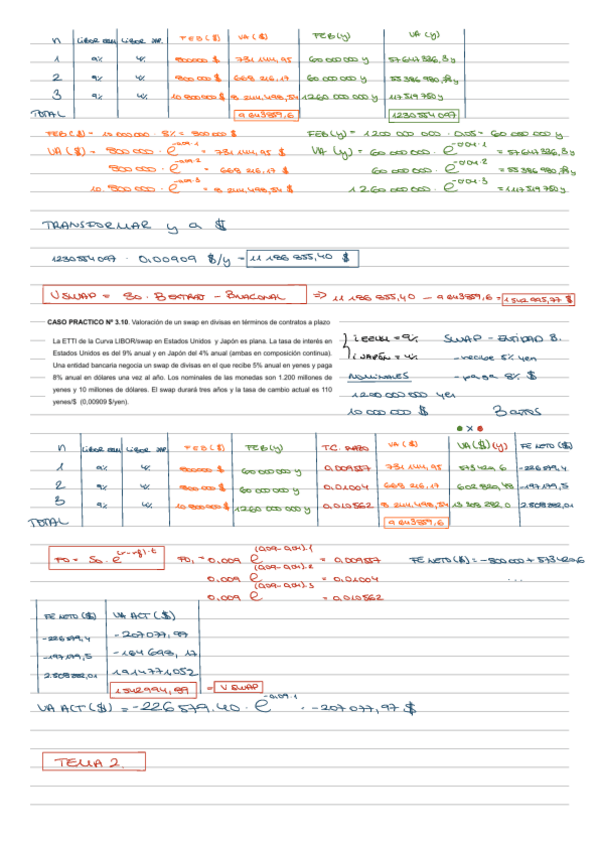 n LIBOR EEUU LIBOR JAP. FEB($) VA($) FEB(y) VA(y)
1 9% 4% 800000 $ 731144,95 60 000 000 y 57647366,3 y
2 9% 4% 800 000 $ 668 216,17 60 000 000 y 55386980,78 y
3 9% 4% 10 800 000 $ 8 244,498,54 1260 000 000 y 1117519750 y
TOTAL 9 643 859,6 1230554097
FEB($) = 10 000 000 · 8% = 800 000 $ FEB(y) = 1200 000 000 · 0,05 = 60 000 000 y
VA($) = 800 000 · e^-0,09·1 = 731144,95 $ VA (y) = 60 000 000 · e^-0,04·1 = 57647366,3 y
800 000 · e^-0,09·2 = 668 216,17 $ 60 000 000 · e^-0,04·2 = 55386 980,78 y
10. 800 000 · e^-0,09·3 = 8 244,498,54 $ 1260 000 000 · e^-0,04·3 = 1117519750 y
TRANSFORMAR y a $
1230554097 · 0,00909 $/y = 11 186 855,40 $
VSWAP = So · BEXTRAJ - BNACIONAL => 11 186 855,40 - 9 643 859,6 = 1 542 995,77 $
CASO PRACTICO Nº 3.10. Valoración de un swap en divisas en términos de contratos a plazo
La ETTI de la Curva LIBOR/swap en Estados Unidos y Japón es plana. La tasa de interés en
Estados Unidos es del 9% anual y en Japón del 4% anual (ambas en composición continua).
Una entidad bancaria negocia un swap de divisas en el que recibe 5% anual en yenes y paga
8% anual en dólares una vez al año. Los nominales de las monedas son 1.200 millones de
yenes y 10 millones de dólares. El swap durará tres años y la tasa de cambio actual es 110
yenes/$ (0,00909 $/yen).
i EEUU = 9% SWAP - ENTIDAD B.
i JAPÓN = 4% - recibe 5% yen
NOMINALES - paga 8% $
1200 000 000 yen
10 000 000 $ 3 años
x
n LIBOR EEUU LIBOR JAP. FEB($) FEB(y) T.C. PLAZO VA($) VA($)(y) FE NETO ($)
1 9% 4% 800000 $ 60 000 000 y 0,009557 731144,95 573420,6 -226579,4
2 9% 4% 800 000 $ 60 000 000 y 0,01004 668 216,17 602 820,48 -197179,5
3 9% 4% 10 800 000 $ 1260 000 000 y 0,010562 8 244,498,54 13 308 282,0 2.508 282,01
TOTAL 9 643 859,6
Fo = So · e^(r-rf)·t Fo1 = 0,009 e^(0,09-0,04)·1 = 0,00957 FE NETO ($) = -800 000 + 573420,6
0,009 e^(0,09-0,04)·2 = 0,01004 ...
0,009 e^(0,09-0,04)·3 = 0,010562
FE NETO ($) VA ACT ($)
-226579,4 -207077,97
-197179,5 -164698, 17
2.508 282,01 1914771,052
1 542 994,89 = V SWAP
VA ACT ($) = -226 579,40 · e^-0,09·1 · -207 077,97 $
TEMA 2.